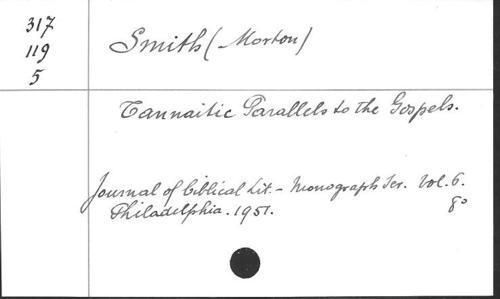 317
119
5
Smith (Morton)
Tannaitic Parallels to the Gospels.
Journal of Biblical Lit. - Monograph Ser. Vol. 6.
Philadelphia. 1951. 8°